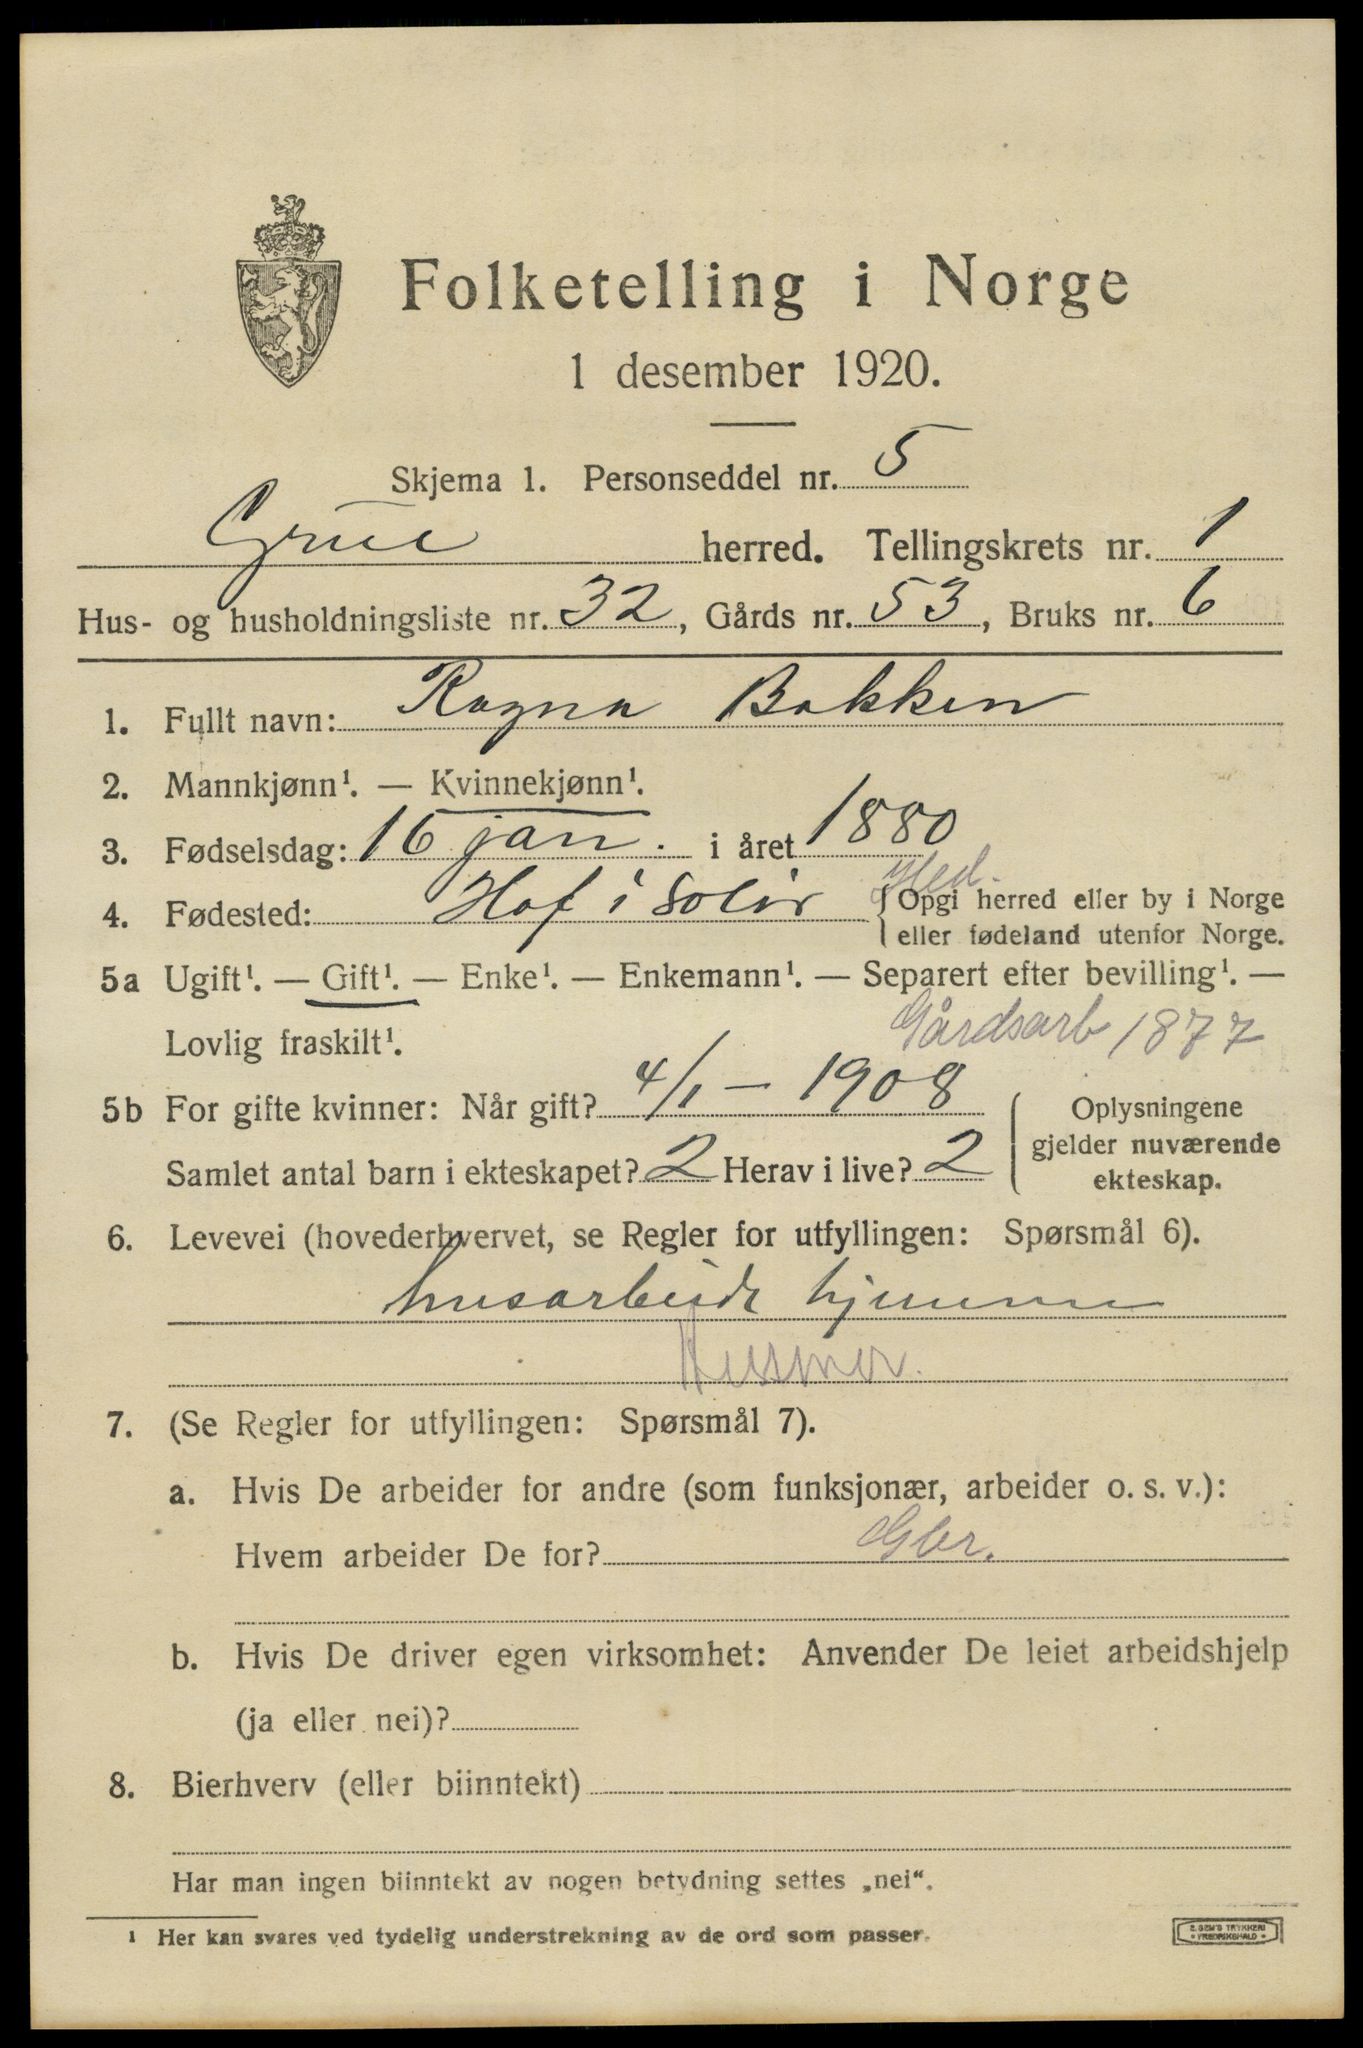 Folketelling i Norge
1 desember 1920.
Skjema 1. Personseddel nr. 5
Grue herred. Tellingskrets nr. 1
Hus- og husholdningsliste nr. 32, Gårds nr. 53, Bruks nr. 6
1. Fullt navn: Ragna Bakken
2. Mannkjønn¹. — Kvinnekjønn¹.
3. Fødselsdag: 16 jan. i året 1880
Hed.
4. Fødested: Hof i Solør { Opgi herred eller by i Norge
eller fødeland utenfor Norge.
5a Ugift¹. — Gift¹. — Enke¹. — Enkemann¹. — Separert efter bevilling¹. —
Lovlig fraskilt¹.
Gårdsarb 1877
5b For gifte kvinner: Når gift? 4/1 — 1908
Samlet antal barn i ekteskapet? 2 Herav i live? 2
Oplysningene
gjelder nuværende
ekteskap.
6. Levevei (hovederhvervet, se Regler for utfyllingen: Spørsmål 6).
husarbeide hjemme
Husmor.
7. (Se Regler for utfyllingen: Spørsmål 7).
a. Hvis De arbeider for andre (som funksjonær, arbeider o. s. v.):
Hvem arbeider De for? Gbr.
b. Hvis De driver egen virksomhet: Anvender De leiet arbeidshjelp
(ja eller nei)?
8. Bierhverv (eller biinntekt)
Har man ingen biinntekt av nogen betydning settes „nei“.
¹ Her kan svares ved tydelig understrekning av de ord som passer.
E. SEM'S TRYKKERI
FREDRIKSHALD